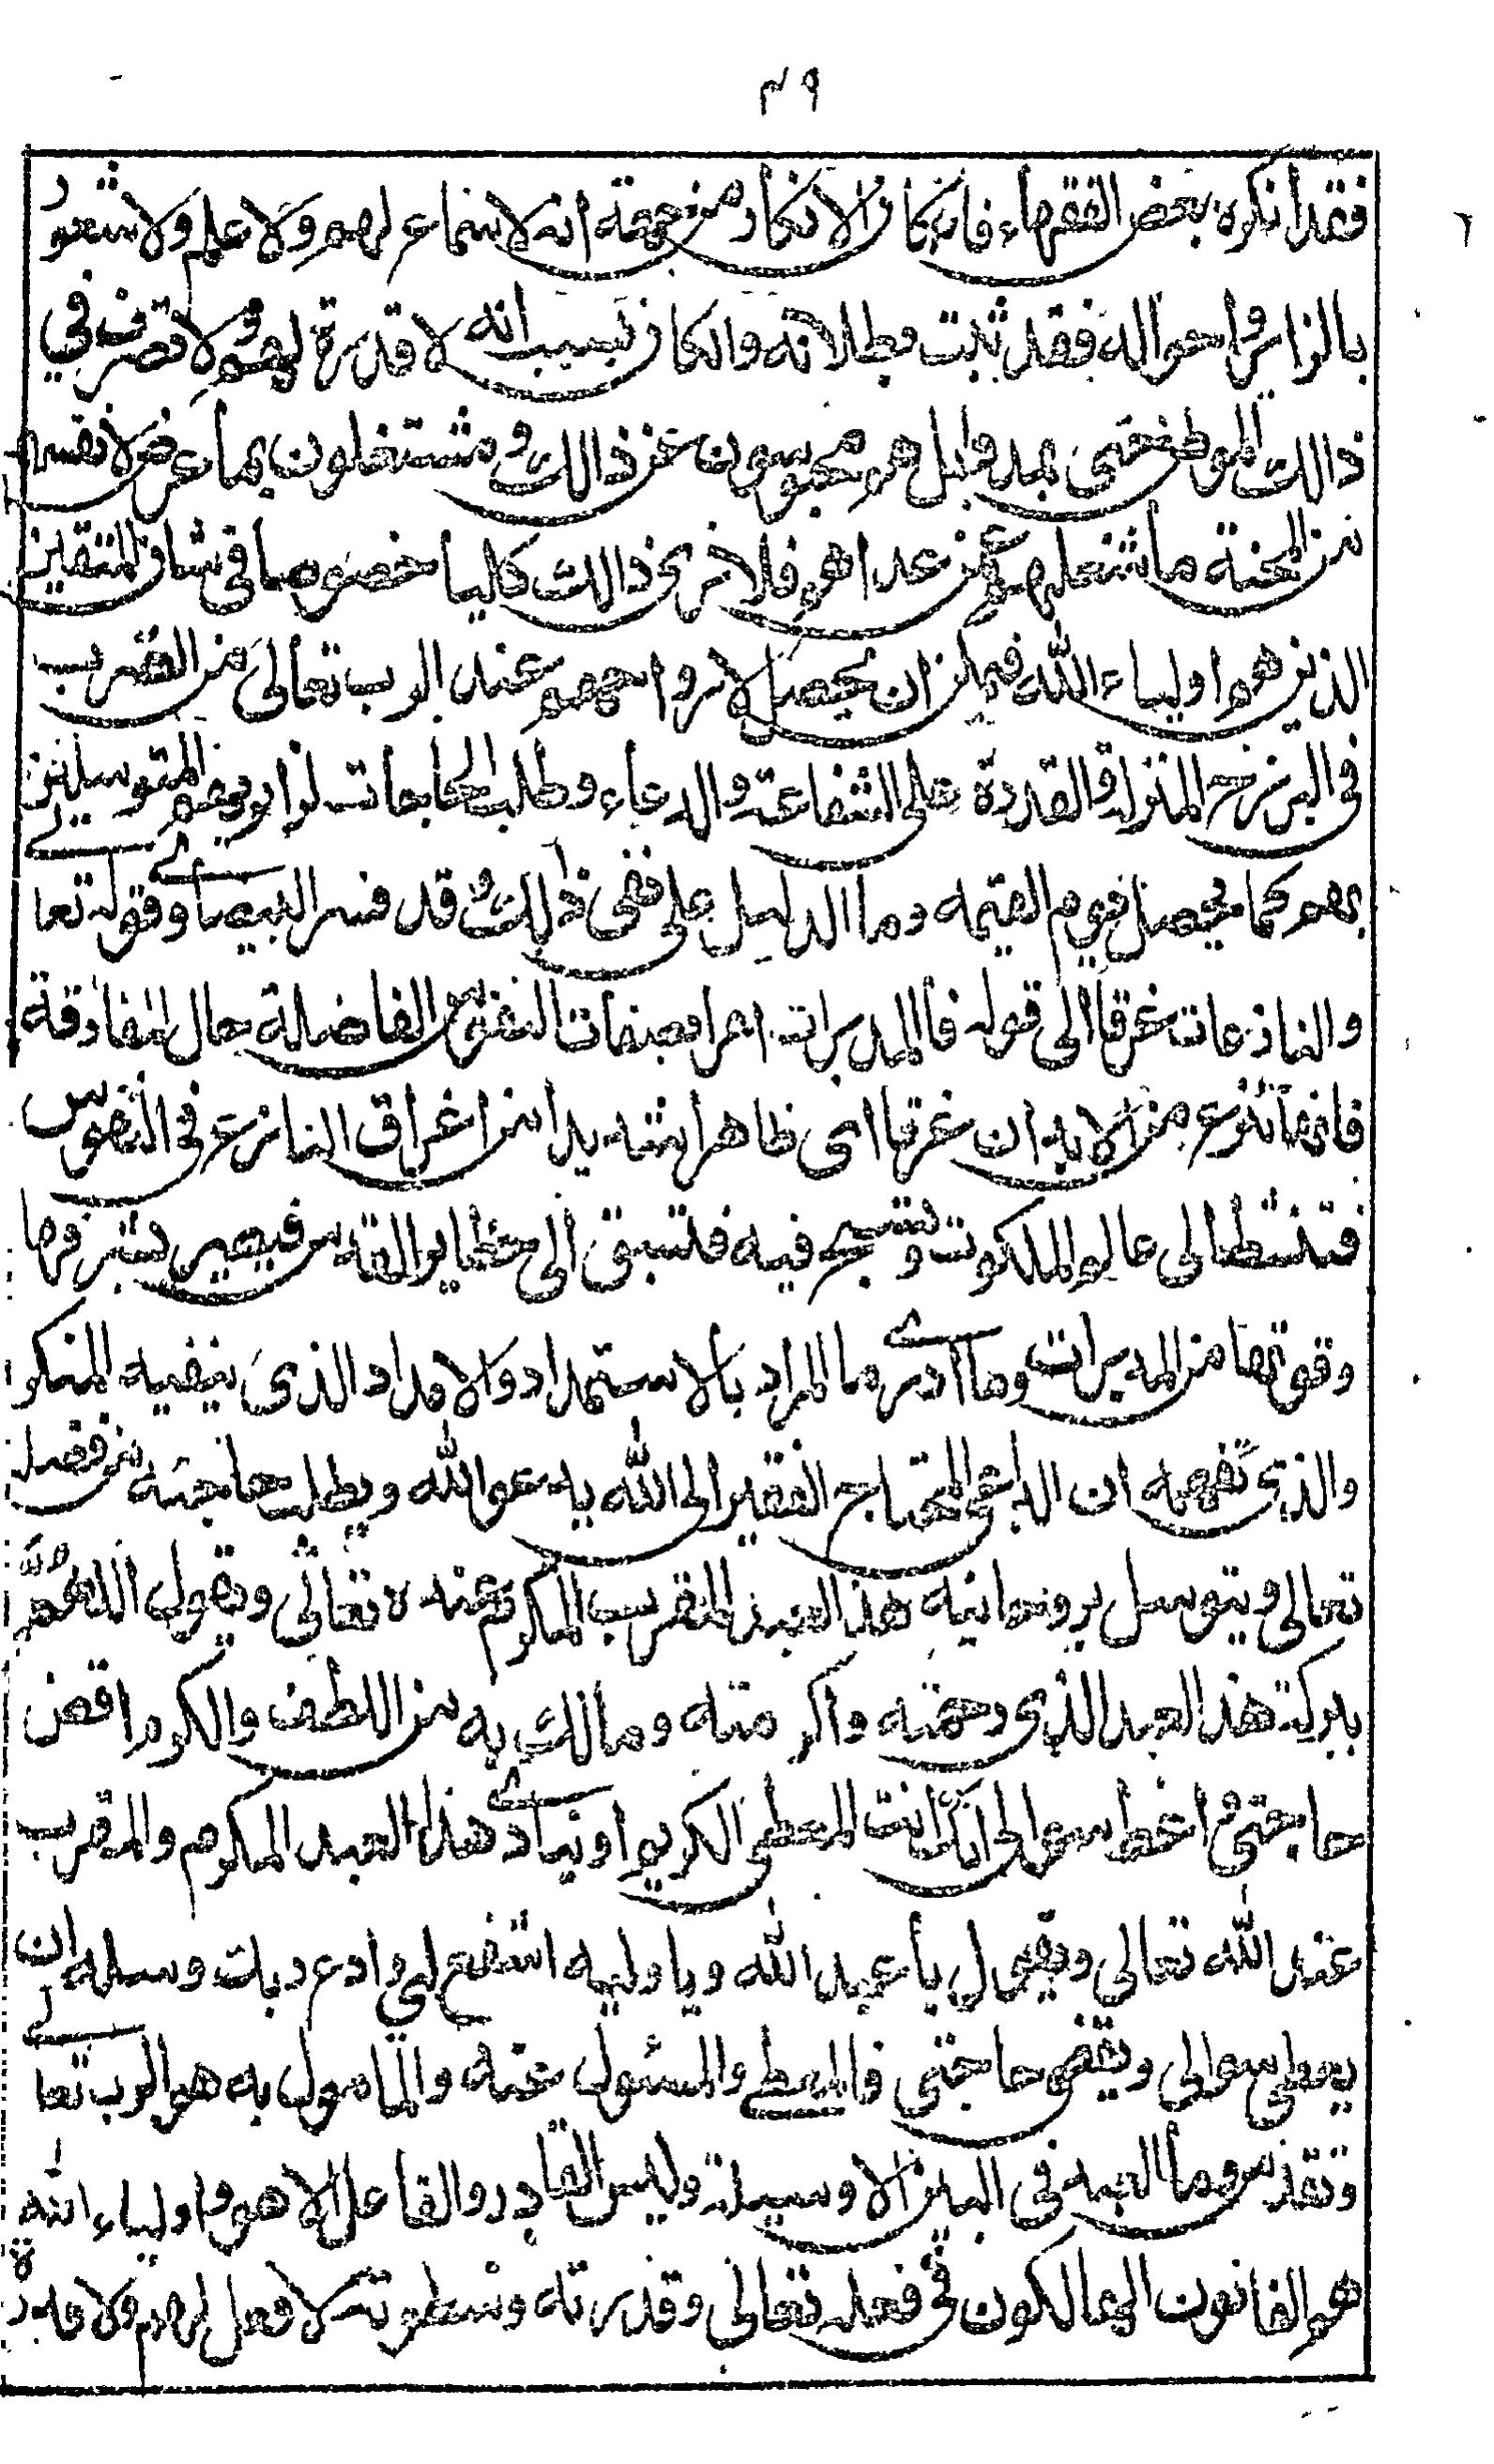 ٤٩
فقد انكره بعض الفقهاء فان كان الانكار من جهة انه لا سماع لهم ولا علم ولا شعور
بالزائر واحواله فقد ثبت بطلانه وان كان بسبب انه لا قدرة لهم ولا تصرف في
ذالك الموطن حتى يمدوا بل هم محبوسون عن ذالك ومشتغلون بما عرض لانفسهم
من المحنة ما شغلهم عمن عداهم فلا نرى ذالك كليا خصوصا فى شان المتقين
الذين هم اولياء الله فيمكن ان يحصل لارواحهم عند الرب تعالى من القرب
فى البرزخ المنزلة والقدرة على الشفاعة والدعاء وطلب الحاجات لزائريهم المتوسلين
بهم كما يحصل فيوم القيمه وما الدليل على نفى ذالك وقد فسر البيضاوى قوله تعالى
والنازعات غرقا الى قوله فالمدبرات امرا بصفات النفوس الفاضلة حال المفارقة
فانها تنزع من الابدان غرقا اى ظاهرا شديدا من اغراق النازع فى القوس
فتنشط الى عالم الملكوت وتسبح فيه فتسبق الى حظاير القدس فيصير بشرفها
وقوتها من المدبرات وما ادرى ما المراد بالاستمداد والامداد الذى ينفيه المنكر
والذى نفهمه ان الداعى المحتاج الفقير الى الله يدعو الله ويطلب حاجته من فضل
تعالى ويتوسل بروحانية هذا العبد المقرب المكرم عنده تعالى ويقول اللهم
ببركة هذا العبد الذى رحمته واكرمته ومالك به من اللطف والكرم اقض
حاجتى واعط سوالى انك انت المعطى الكريم او ينادى هذا العبد المكرم والمقرب
عند الله تعالى ويقول يا عبد الله ويا وليه اشفع لى وادع ربك وسله ان
يعطى سوالى ويقضى حاجتى فالمعطى والمسئول عنه والمامول به هو الرب تعالى
وتقدس وما العبد فى البين الا وسيلة وليس القادر والفاعل الا هو واولياء الله
هم الفانون الهالكون فى فعله تعالى وقدرته وسطوته لا فعل لهم ولا قدرة